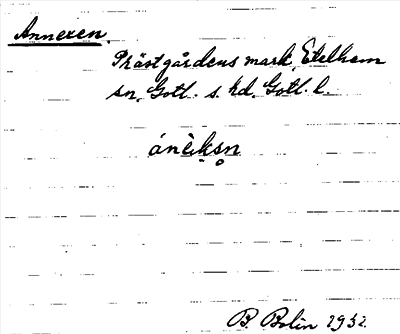 Annexen
Prästgårdens mark, Etelhem
sn, Gotl. s. hd, Gotl. l.
ánèi̭ksn̥
B. Bolin 1932